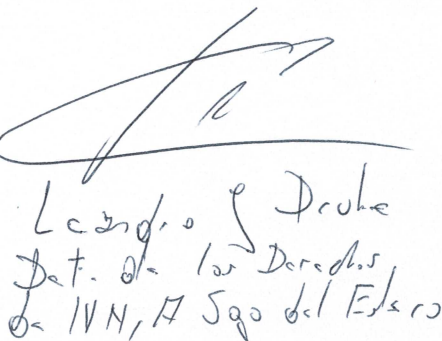 Leandro G
Def. de los Derechos
de NN, A Sgo del Estero